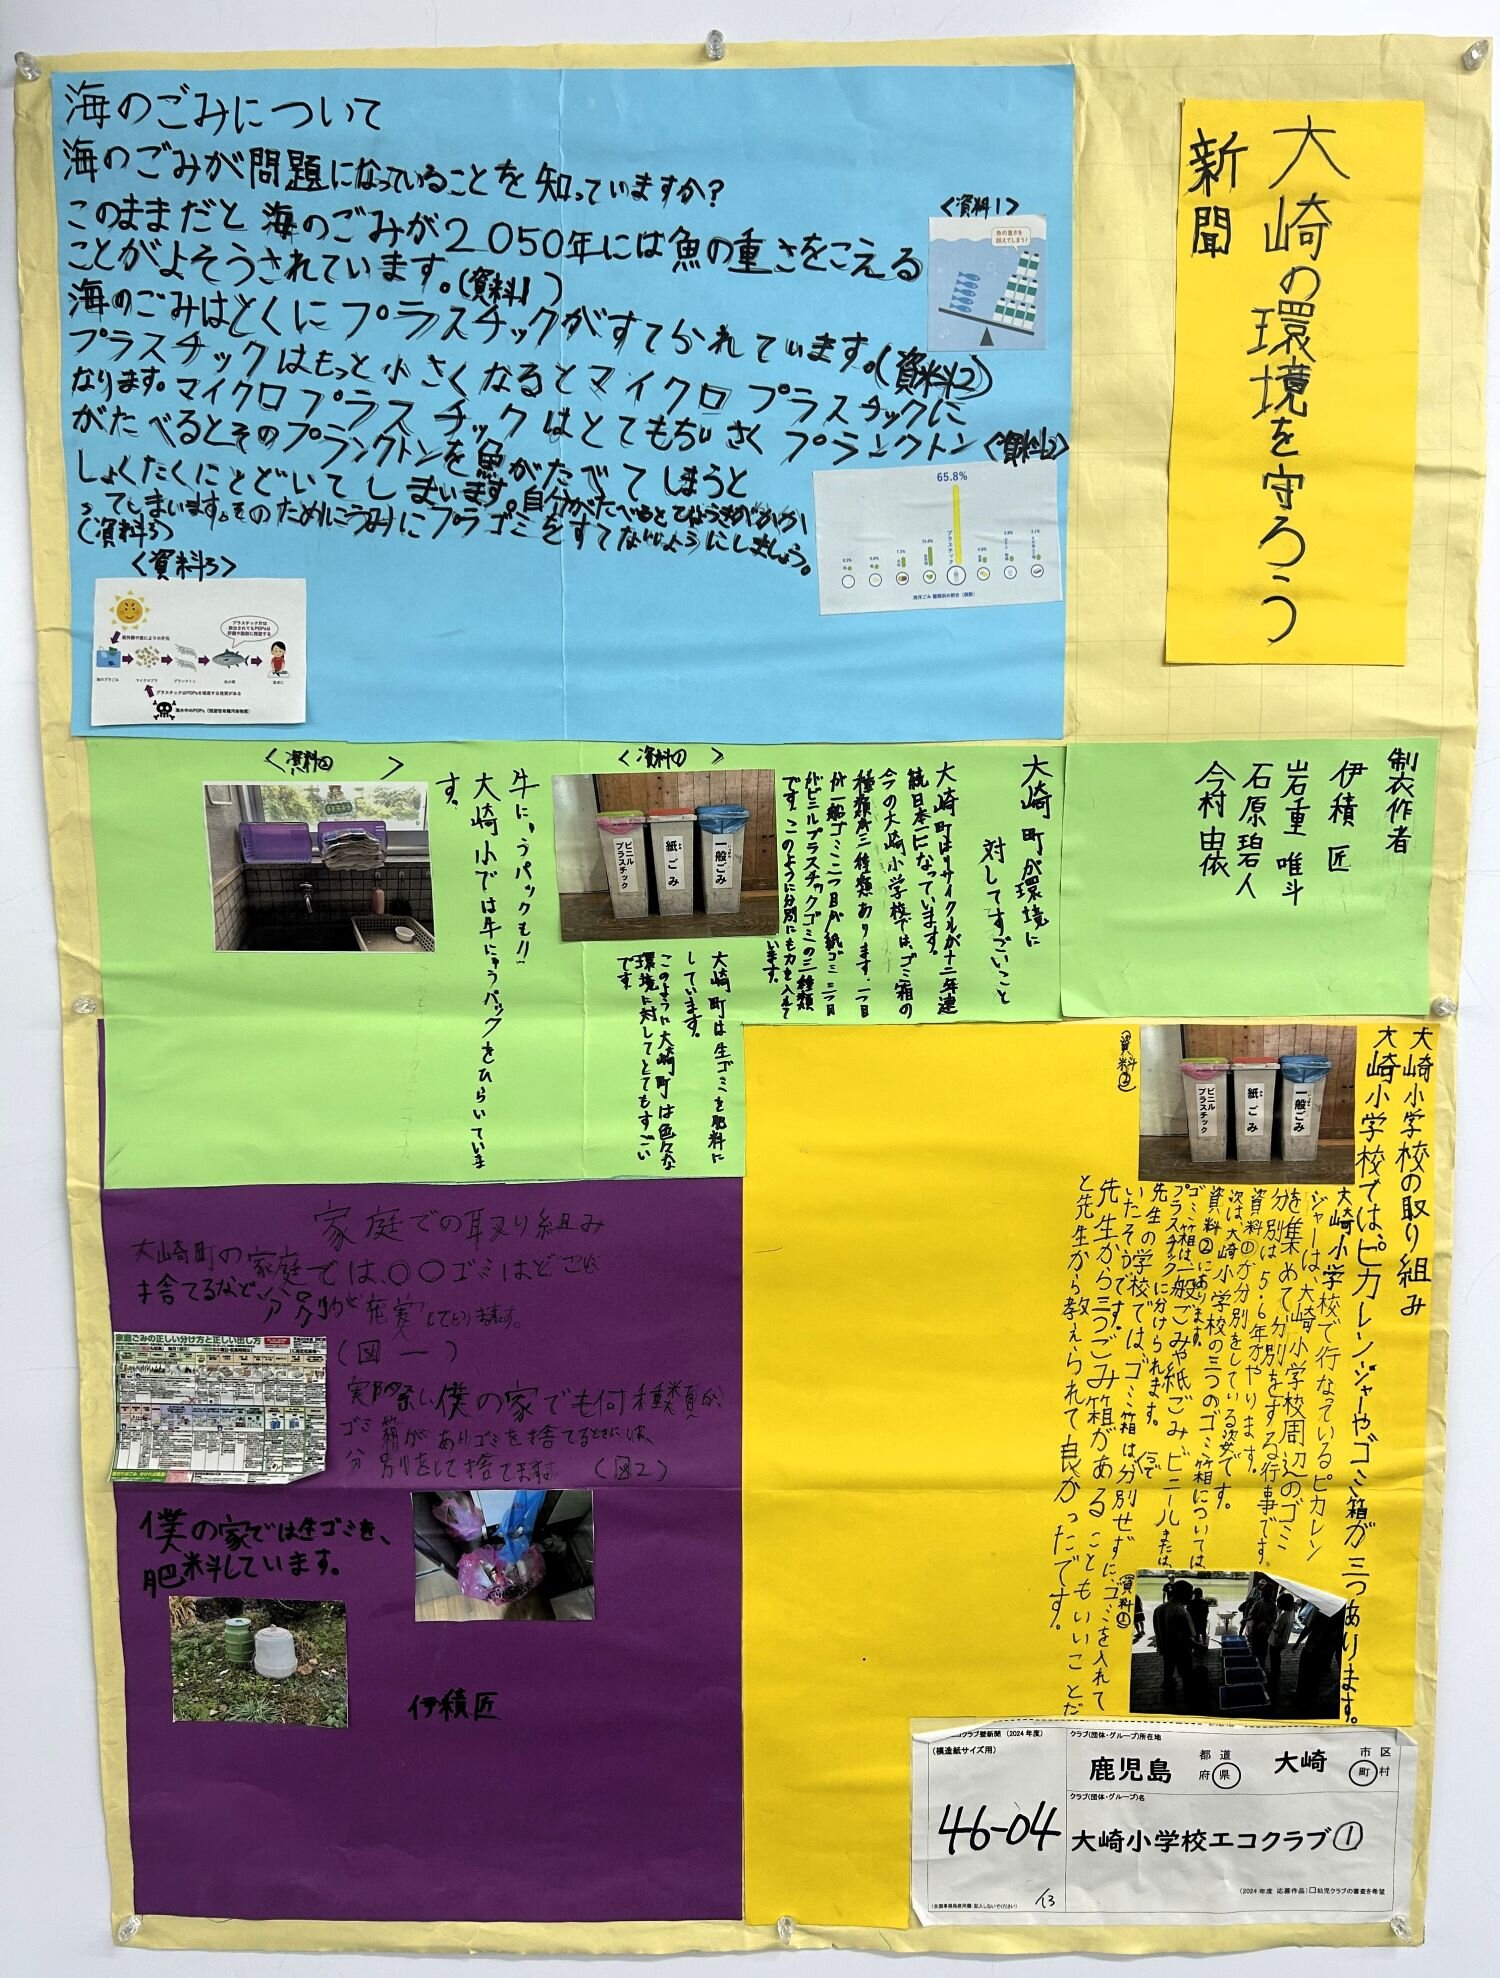 大崎の環境を守ろう
新聞
海のごみについて
海のごみが問題になっていることを知っていますか?
このままだと海のごみが2050年には魚の重さをこえる
ことがよそうされています。(資料1)
海のごみはとくにプラスチックがすてられています。(資料2)
プラスチックはもっと小さくなるとマイクロプラスチックに
なります。マイクロプラスチックはとてもちいさくプランクトン
がたべるとそのプランクトンを魚がたべてしまうと
しょくたくにとどいてしまいます。自分がたべると
ってしまいます。そのためにうみにプラゴミをすてないようにしましょう。
(資料3)
<資料1>
魚の重さを
超えてしまう!
<資料2>
65.8%
プラスチック
海洋ごみ 種類別の割合(個数)
<資料3>
プラスチック片は
排出されてもPOPsは
肝臓や脂肪に残留する
紫外線や波により小片化
海のプラごみ
マイクロプラ
プランクトン
魚介類
食卓に
プラスチックはPOPsを吸着する性質がある
海水中のPOPs(残留性有機汚染物質)
制作者
伊積 匠
岩重 唯斗
石原 碧人
今村 由依
大崎町が環境に
対してすごいこと
大崎町はリサイクルが十二年連
続日本一になっています。
今の大崎小学校では、ゴミ箱の
種類が三種類あります。一つ目
が一般ゴミ二つ目が紙ゴミ三つ目
がビニルプラスチックゴミの三種類
です。このように分別にも力を入れて
います。
<資料①>
ビニル
プラスチック
紙ごみ
一般ごみ
大崎町は生ゴミを肥料に
しています。
このように大崎町は色々な
環境に対してとてもすごい
です。
牛にゅうパックも!!
大崎小では牛にゅうパックをひらいていま
す。
<資料②>
大崎小学校の取り組み
大崎小学校では、ピカレンジャーやゴミ箱が三つあります。
大崎小学校で行なっているピカレン
ジャーは、大崎小学校周辺のゴミ
を集めて分別をする行事です。
分別は5・6年がやります。
資料①が分別をしている姿です。
次は、大崎小学校の三つのゴミ箱については
資料②にあります。
ゴミ箱は一般ごみや紙ごみ、ビニールまたは、
プラスチックに分けられます。
先生の学校では、ゴミ箱は分別せずに、ゴミを入れて
いたそうです。
先生から三つごみ箱があることもいいことだ
と先生から教えられて良かったです。
(資料②)
ビニル
プラスチック
紙ごみ
一般ごみ
(資料①)
家庭での取り組み
大崎町の家庭では、〇〇ゴミはどこに
捨てるなど、
(図一)
家庭ごみの正しい分け方と正しい出し方
実際に僕の家でも何種類か、
ゴミ箱がありゴミを捨てるときには、
分別をして捨てます。 (図2)
僕の家では生ゴミを、
肥料しています。
伊積匠
エコクラブ壁新聞(2024年度)
(模造紙サイズ用)
46-04
13
(全国事務局使用欄:記入しないでください)
クラブ(団体・グループ)所在地
鹿児島 都道府県 大崎 市区町村
クラブ(団体・グループ)名
大崎小学校エコクラブ①
(2024年度 応募作品)□幼児クラブの審査を希望